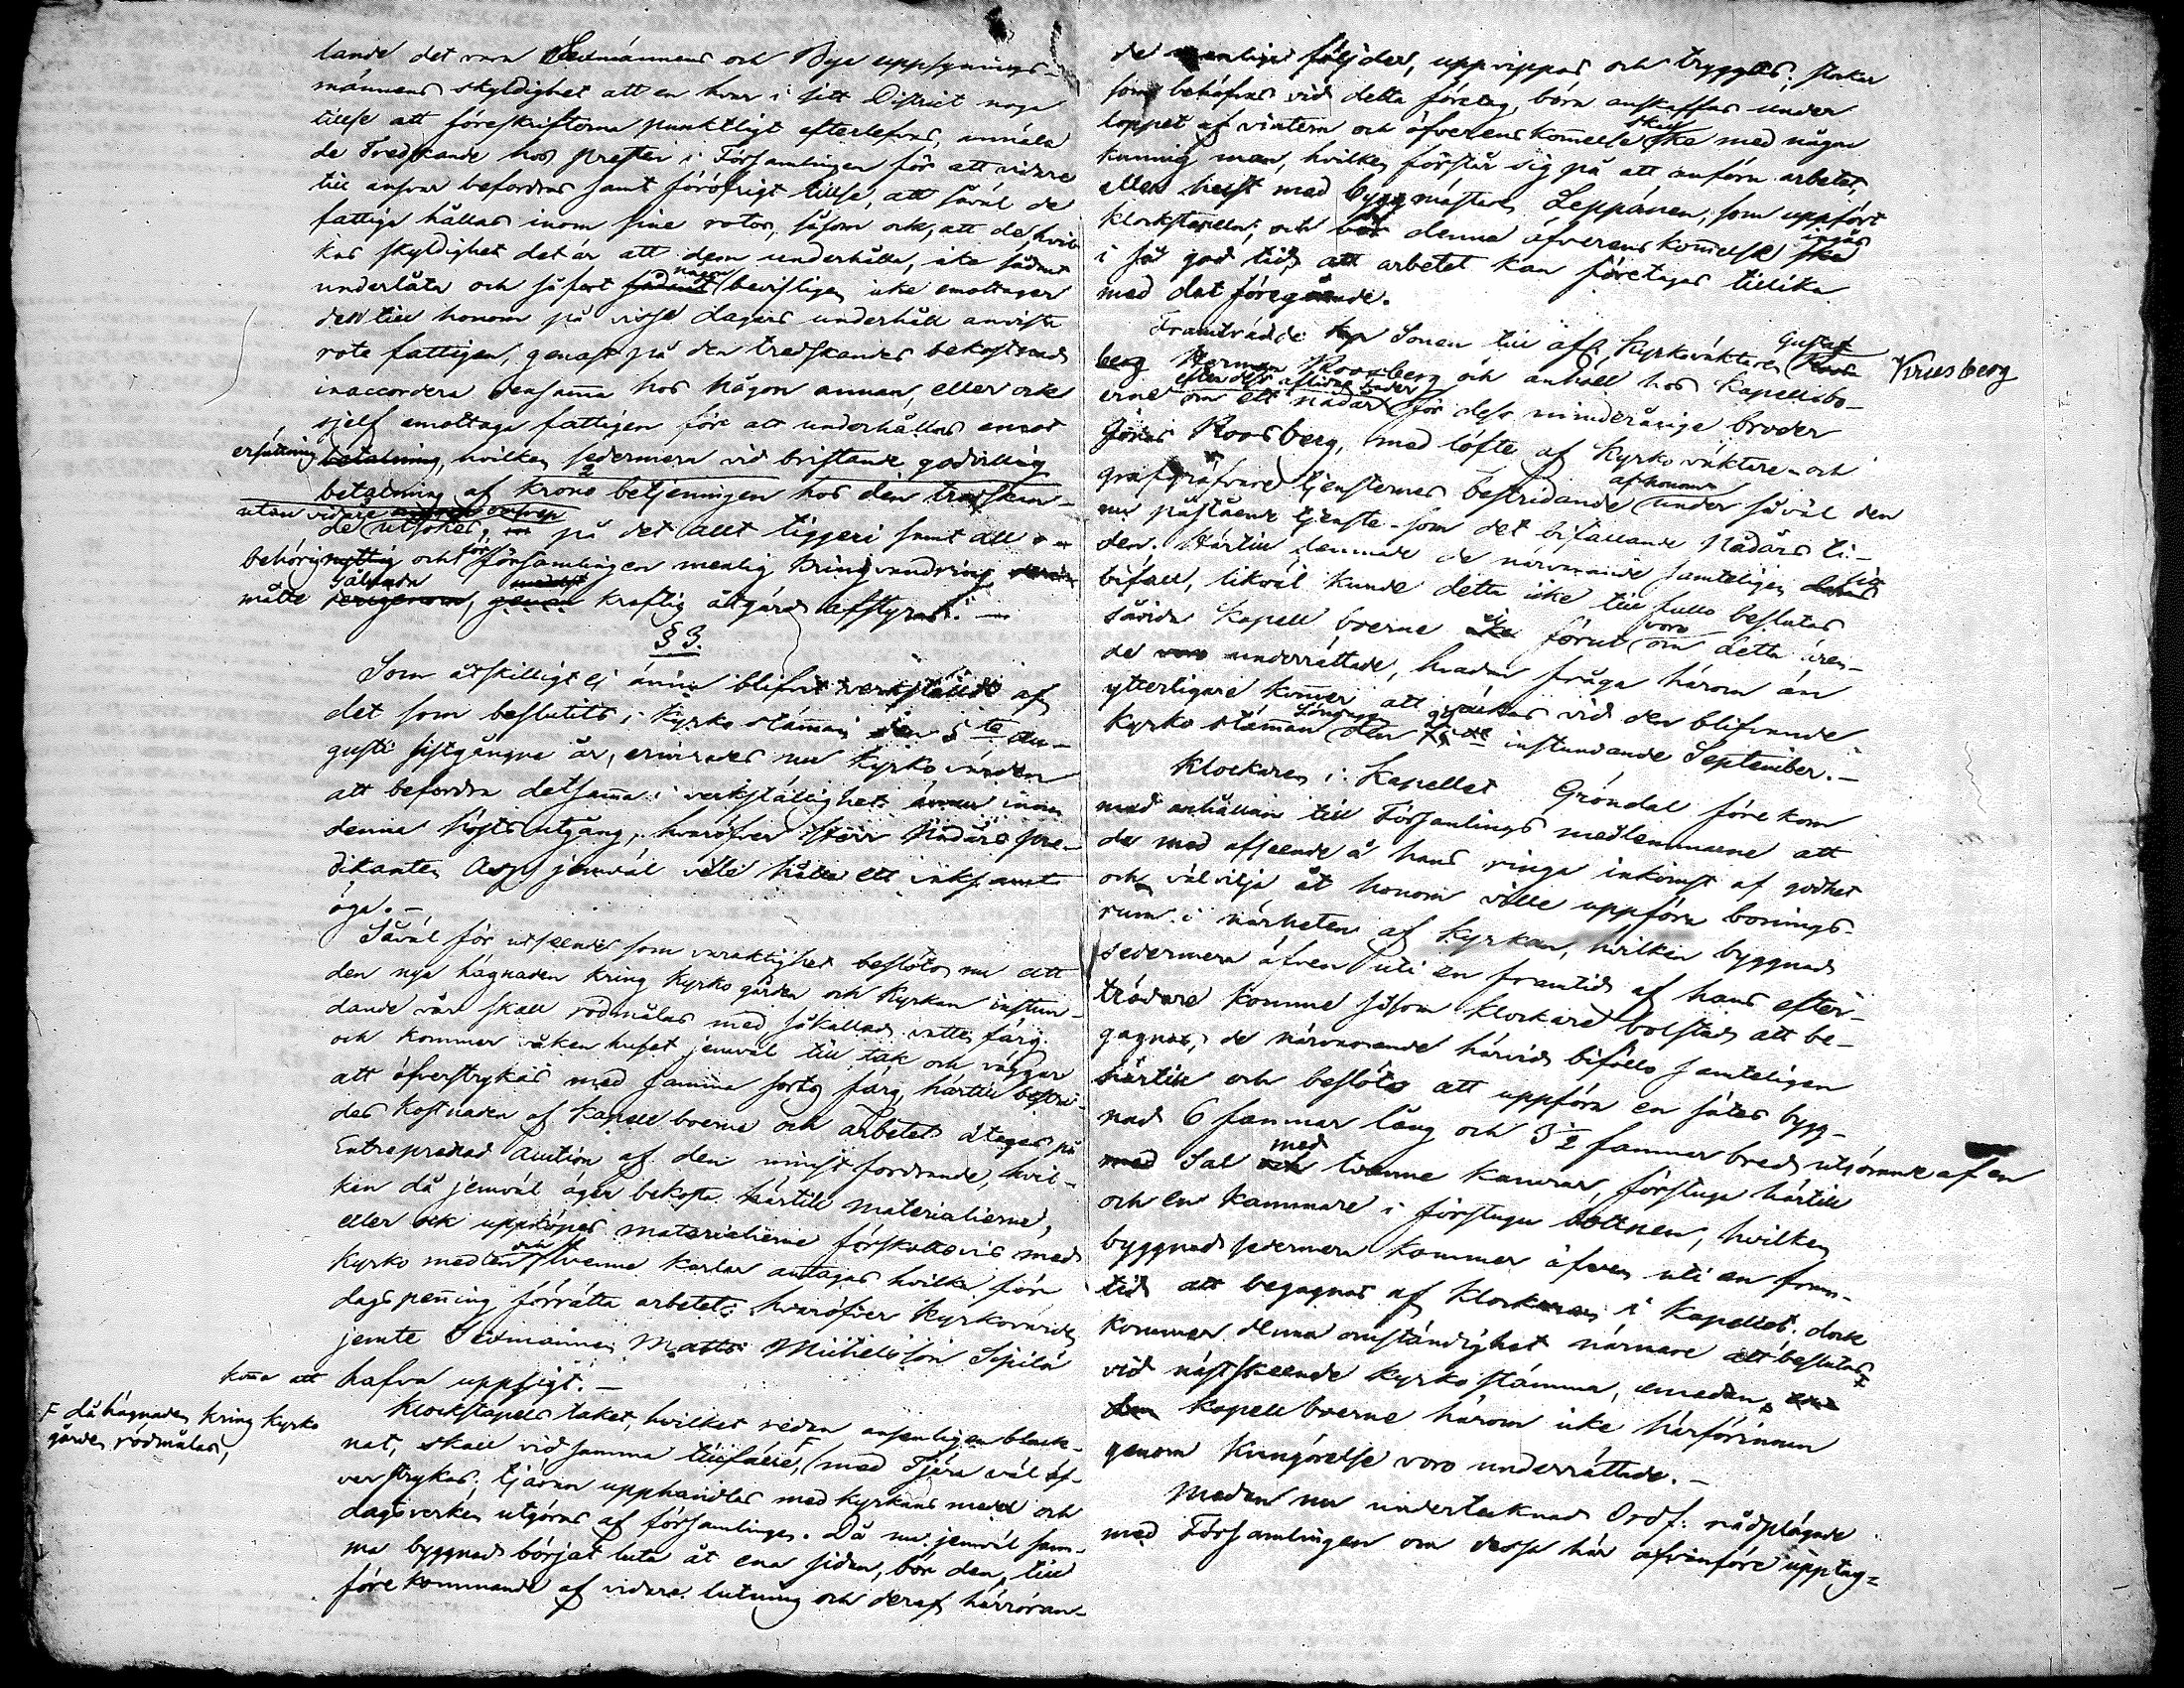 lande det vara Sexmännens och Bye uppsynings-
männens skyldighet att en hvar i sitt District noga
tillse att föreskrifterna punktligt efterlefvas, anmäla
de Tredskande hos Prester i Församlingen för att vidare
till ansvar befordras samt föröfrigt tillse, att såväl de
fattiga hållas inom sine rotor, såsom ock, att de, hvil-
kas skyldighet det är att dem underhålla, icke sådant
underlåta och såfort någon bevisligen icke emottager
den till honom på visse dagars underhåll anviste
rote fattigen, genast på den tredskandes bekostnad
inaccordera densamma hos någon annan, eller ock
sjelf emottaga fattigen före att underhållas emot
ersättning betalning, hvilken sedermera vid bristande godvillig
betalning af Krono betjeningen hos den tredskan-
utan vidare
de utsökes, på det allt tiggeri samt all
behörig nyttig och för församlingen menlig kringvandring
måtte derigenom, genom kraftig åtgärd afstyras. —
§ 3.
Som åtskilligt ej ännu blifvit verkstäldt af
det som beslutits i Kyrko stämman den 5te Au-
gusti sistgångne år, erinrades nu Kyrko värden
att befordra detsamma i verkställighet innan
denna hösts utgång, hvaröfver Herr Nådårs pre-
dikanten Asp jemväl ville hålla ett vaksamt
öga. —
Såväl för utseendet som varaktighet beslöts nu att
den nya hägnaden kring Kyrko gården och Kyrkan instun-
dande vår skall rödmålas med såkallad vatten färg
och kommer såken huset jemväl till tak och väggar
att öfverstrykas med samma sorts färg, härtill bestri-
des kostnaden af Kapell boerne och arbetet åtages på
Entreprenad Auction af den minst fordrande, hvil-
ken då jemväl äger bekosta härtill materialierne,
eller ock uppköpes materialierne förskottsvis med
Kyrko medlen och tvenne karlar antagas hvilka före
dagspenning förrätta arbetet; hvaröfver Kyrkovärden
jemte Sexmannen Matts Michelsson Sipilä
komma att hafva uppsigt. —
Klockstapels taket, hvilket redan ansenligen black-
F då hägnaden kring Kyrko
gården rödmålas,
nat, skall vid samma tillfälle, F med Tjära väl öf-
verstrykas; tjäran upphandlas med kyrkans medel och
dagsverken utgöras af församlingen. Då nu jemväl sam-
ma byggnad börjat luta åt ena sidan, bör den, till
förekommande af vidare lutning och deraf härröran-
de menliga följder, uppvippas och tryggas; stockar
som behöfvas vid detta företag, böra anskaffas under
loppet af vintern och öfverenskommelse ske med någon
kunnig man, hvilken förstår sig på att anföra arbetet,
eller helst med byggmästaren Leppänen, som uppfört
klockstapeln; och bör denna öfverenskommelse ingås
i så god tid, att arbetet kan företagas tillika
med det föregående.
Framträdde Sonen till afl. Kyrkoväktaren Gustaf Viriusberg
Herman Roosberg och anhöll hos Kapellbo-
efter dess aflidne fader
erne om ett nådår för dess minderårige broder
Jonas Roosberg, med löfte af Kyrko väktare- och
grafgräfvare tjensternes bestridande af honom under såväl den
nu påstående tjenste- som det bifallande Nådårs ti-
den. Härtill lemnade de närvarande samteligen sitt
bifall, likväl kunde detta icke till fullo beslutas
såvida Kapell boerne ej förut voro om detta ären-
de underrättade, hvadan fråga härom än
ytterligare kommer att väckas vid den blifvande
Kyrko stämman Söndagen den instundande September. —
Klockaren i Kapellet Gröndal förekom
med anhållan till Församlings medlemmarne att
de med afseende å hans ringa inkomst af godhet
och välvilja åt honom ville uppföra bonings-
rum i närheten af Kyrkan, hvilken byggnad
sedermera äfven uti en framtid af hans efter-
trädare komme såsom Klockare bolstad att be-
gagnas, de närvarande härvid biföllo samteligen
härtill och beslöto att uppföra en sådan bygg-
nad 6 famnar lång och 3½ famnar bred utgörande af en
Sal med tvenne kamrar, förstuga härtill
och en Kammare i förstugu bottnen, hvilken
byggnad sedermera kommer äfven uti en fram-
tid att begagnas af Klockaren i Kapellet. dock
kommer denna omständighet närmare att beslutas
vid nästskeende Kyrko stämma, emedan
Kapell boerne härom icke härförinnan
genom kungörelse voro underrättade. —
Medan nu undertecknad Ordf: rådplägade
med Församlingen om desse här ofvanföre upptag-